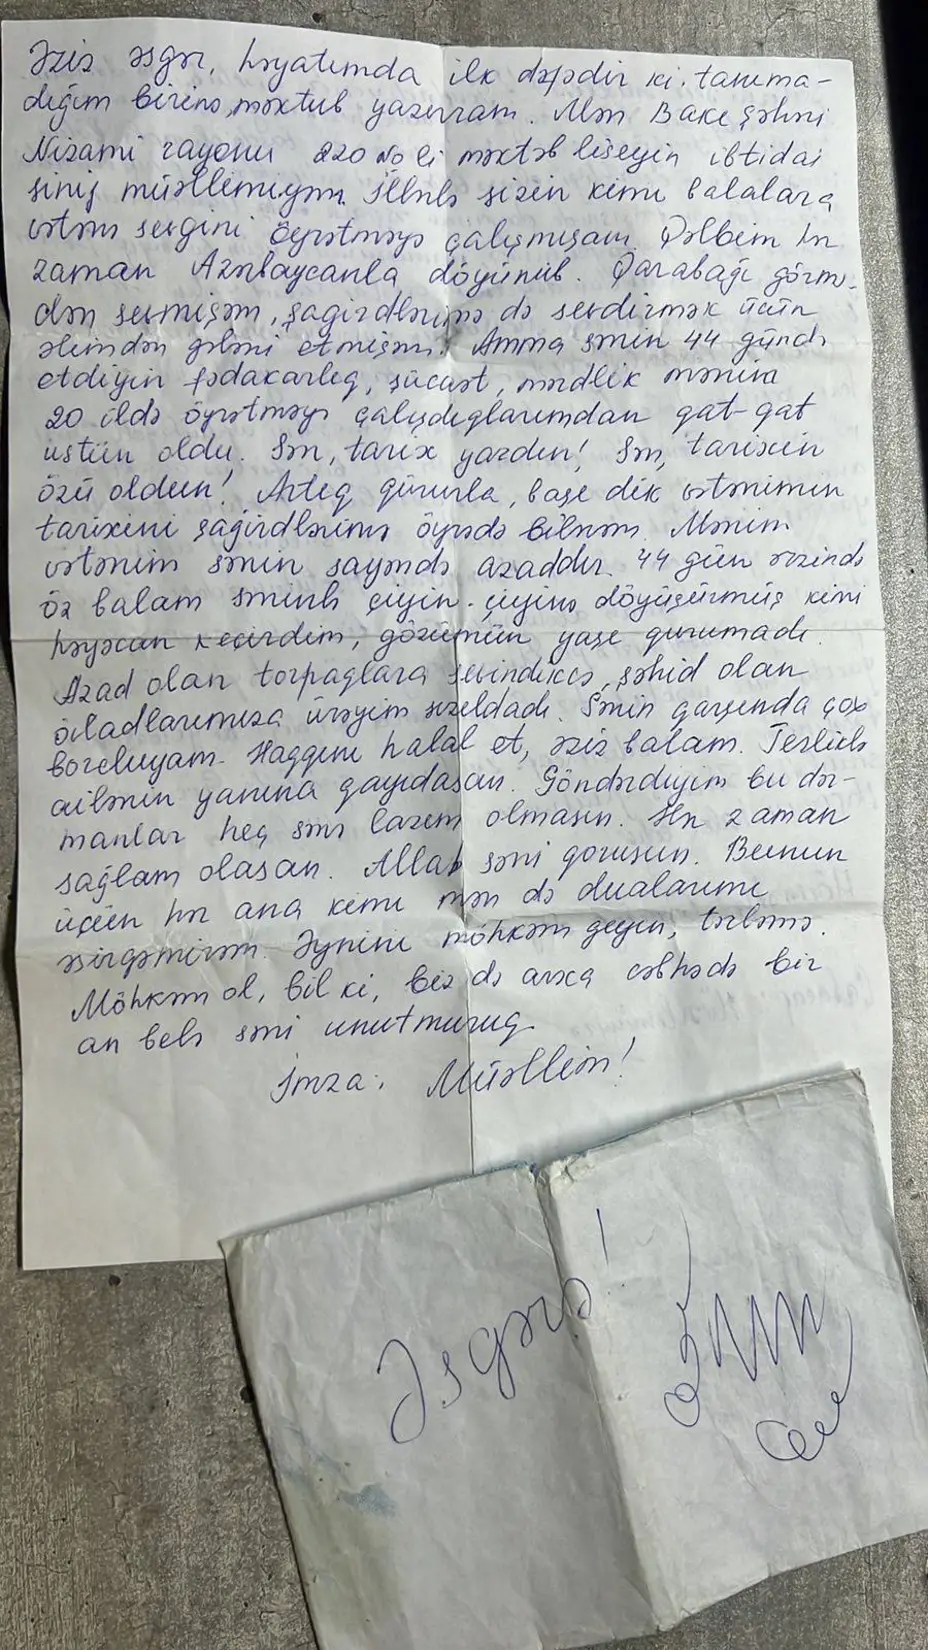 Əziz əsgər, həyatımda ilk dəfədir ki, tanıma-
dığım birinə məktub yazıram. Mən Bakı şəhəri
Nizami rayonu 220 №li məktəb liseyin ibtidai
sinif müəllimiyəm. İllərlə sizin kimi balalara
vətən sevgini öyrətməyə çalışmışam. Qəlbim hər
zaman Azərbaycanla döyünüb. Qarabağı görmə-
dən sevmişəm, şagirdlərimə də sevdirmək üçün
əlimdən gələni etmişəm. Amma sənin 44 gündə
etdiyin fədakarlıq, şücaət, mərdlik mənim
20 ildə öyrətməyə çalışdıqlarımdan qat-qat
üstün oldu. Sən, tarix yazdın! Sən, tarixin
özü oldun! Artıq qürurla, başı dik vətənimin
tarixini şagirdlərimə öyrədə bilərəm. Mənim
vətənim sənin sayəndə azaddır. 44 gün ərzində
öz balam səninlə çiyin-çiyinə döyüşürmüş kimi
həyəcan keçirdim, gözümün yaşı qurumadı.
Azad olan torpaqlara sevindikcə, şəhid olan
övladlarımıza ürəyim sızıldadı. Sənin qarşında çox
borcluyam. Haqqını halal et, əziz balam. Tezliklə
ailənin yanına qayıdasan. Göndərdiyim bu dər-
manlar heç sənə lazım olmasın. Hər zaman
sağlam olasan. Allah səni qorusun. Bunun
üçün hər ana kimi mən də dualarımı
əsirgəmirəm. Əynini möhkəm geyin, tərləmə.
Möhkəm ol, bil ki, biz də arxa cəbhədə bir
an belə səni unutmuruq.
İmza: Müəllim!
Əsgərə!